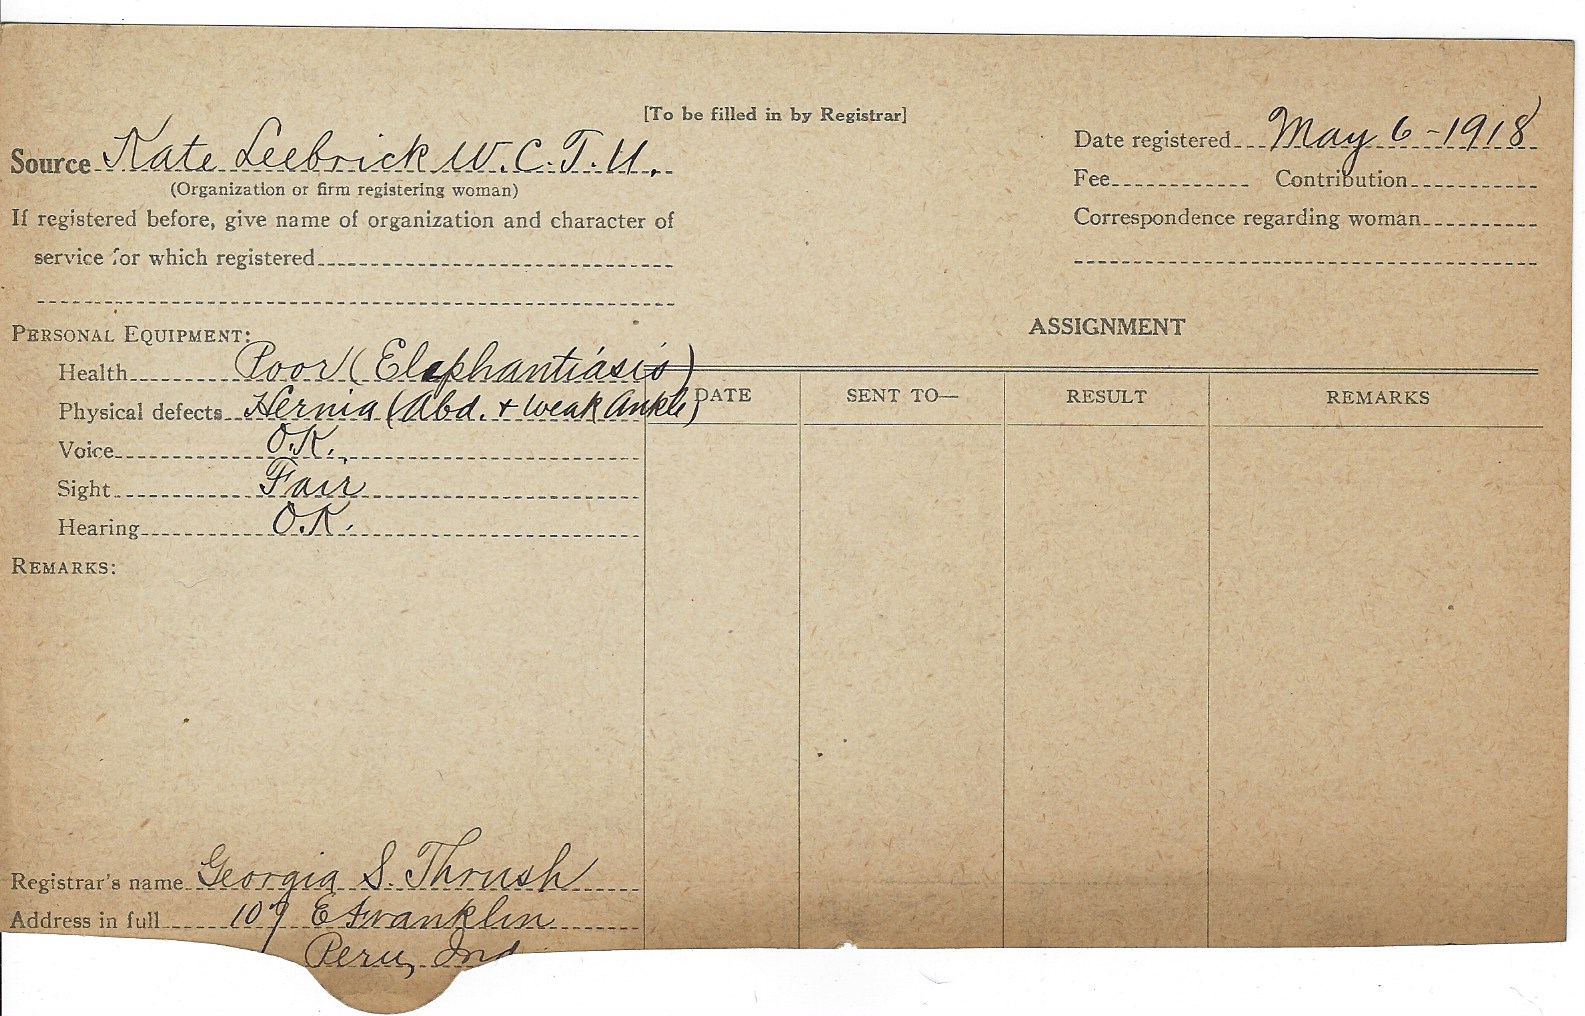 [To be filled in by Registrar]
Source Kate Leebrick W.C.T.U.
(Organization or firm registering woman)
If registered before, give name of organization and character of
service for which registered
Date registered May 6-1918
Fee Contribution
Correspondence regarding woman
PERSONAL EQUIPMENT:
Health Poor (Elephantiasis)
Physical defects Hernia (Abd. + weak Ankle)
Voice O.K.
Sight Fair
Hearing O.K.
REMARKS:
ASSIGNMENT
DATE SENT TO— RESULT REMARKS
Registrar's name Georgia S. Thrush
Address in full 109 E Franklin
Peru, Ind